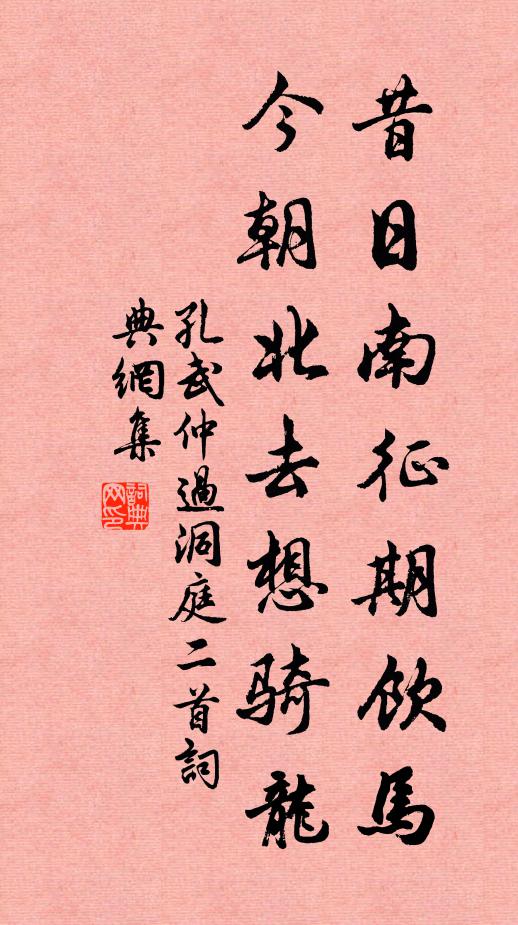 昔日南征期飲馬
今朝北去想騎龍
孔武仲過洞庭二首詞
典網集
詞典
网印